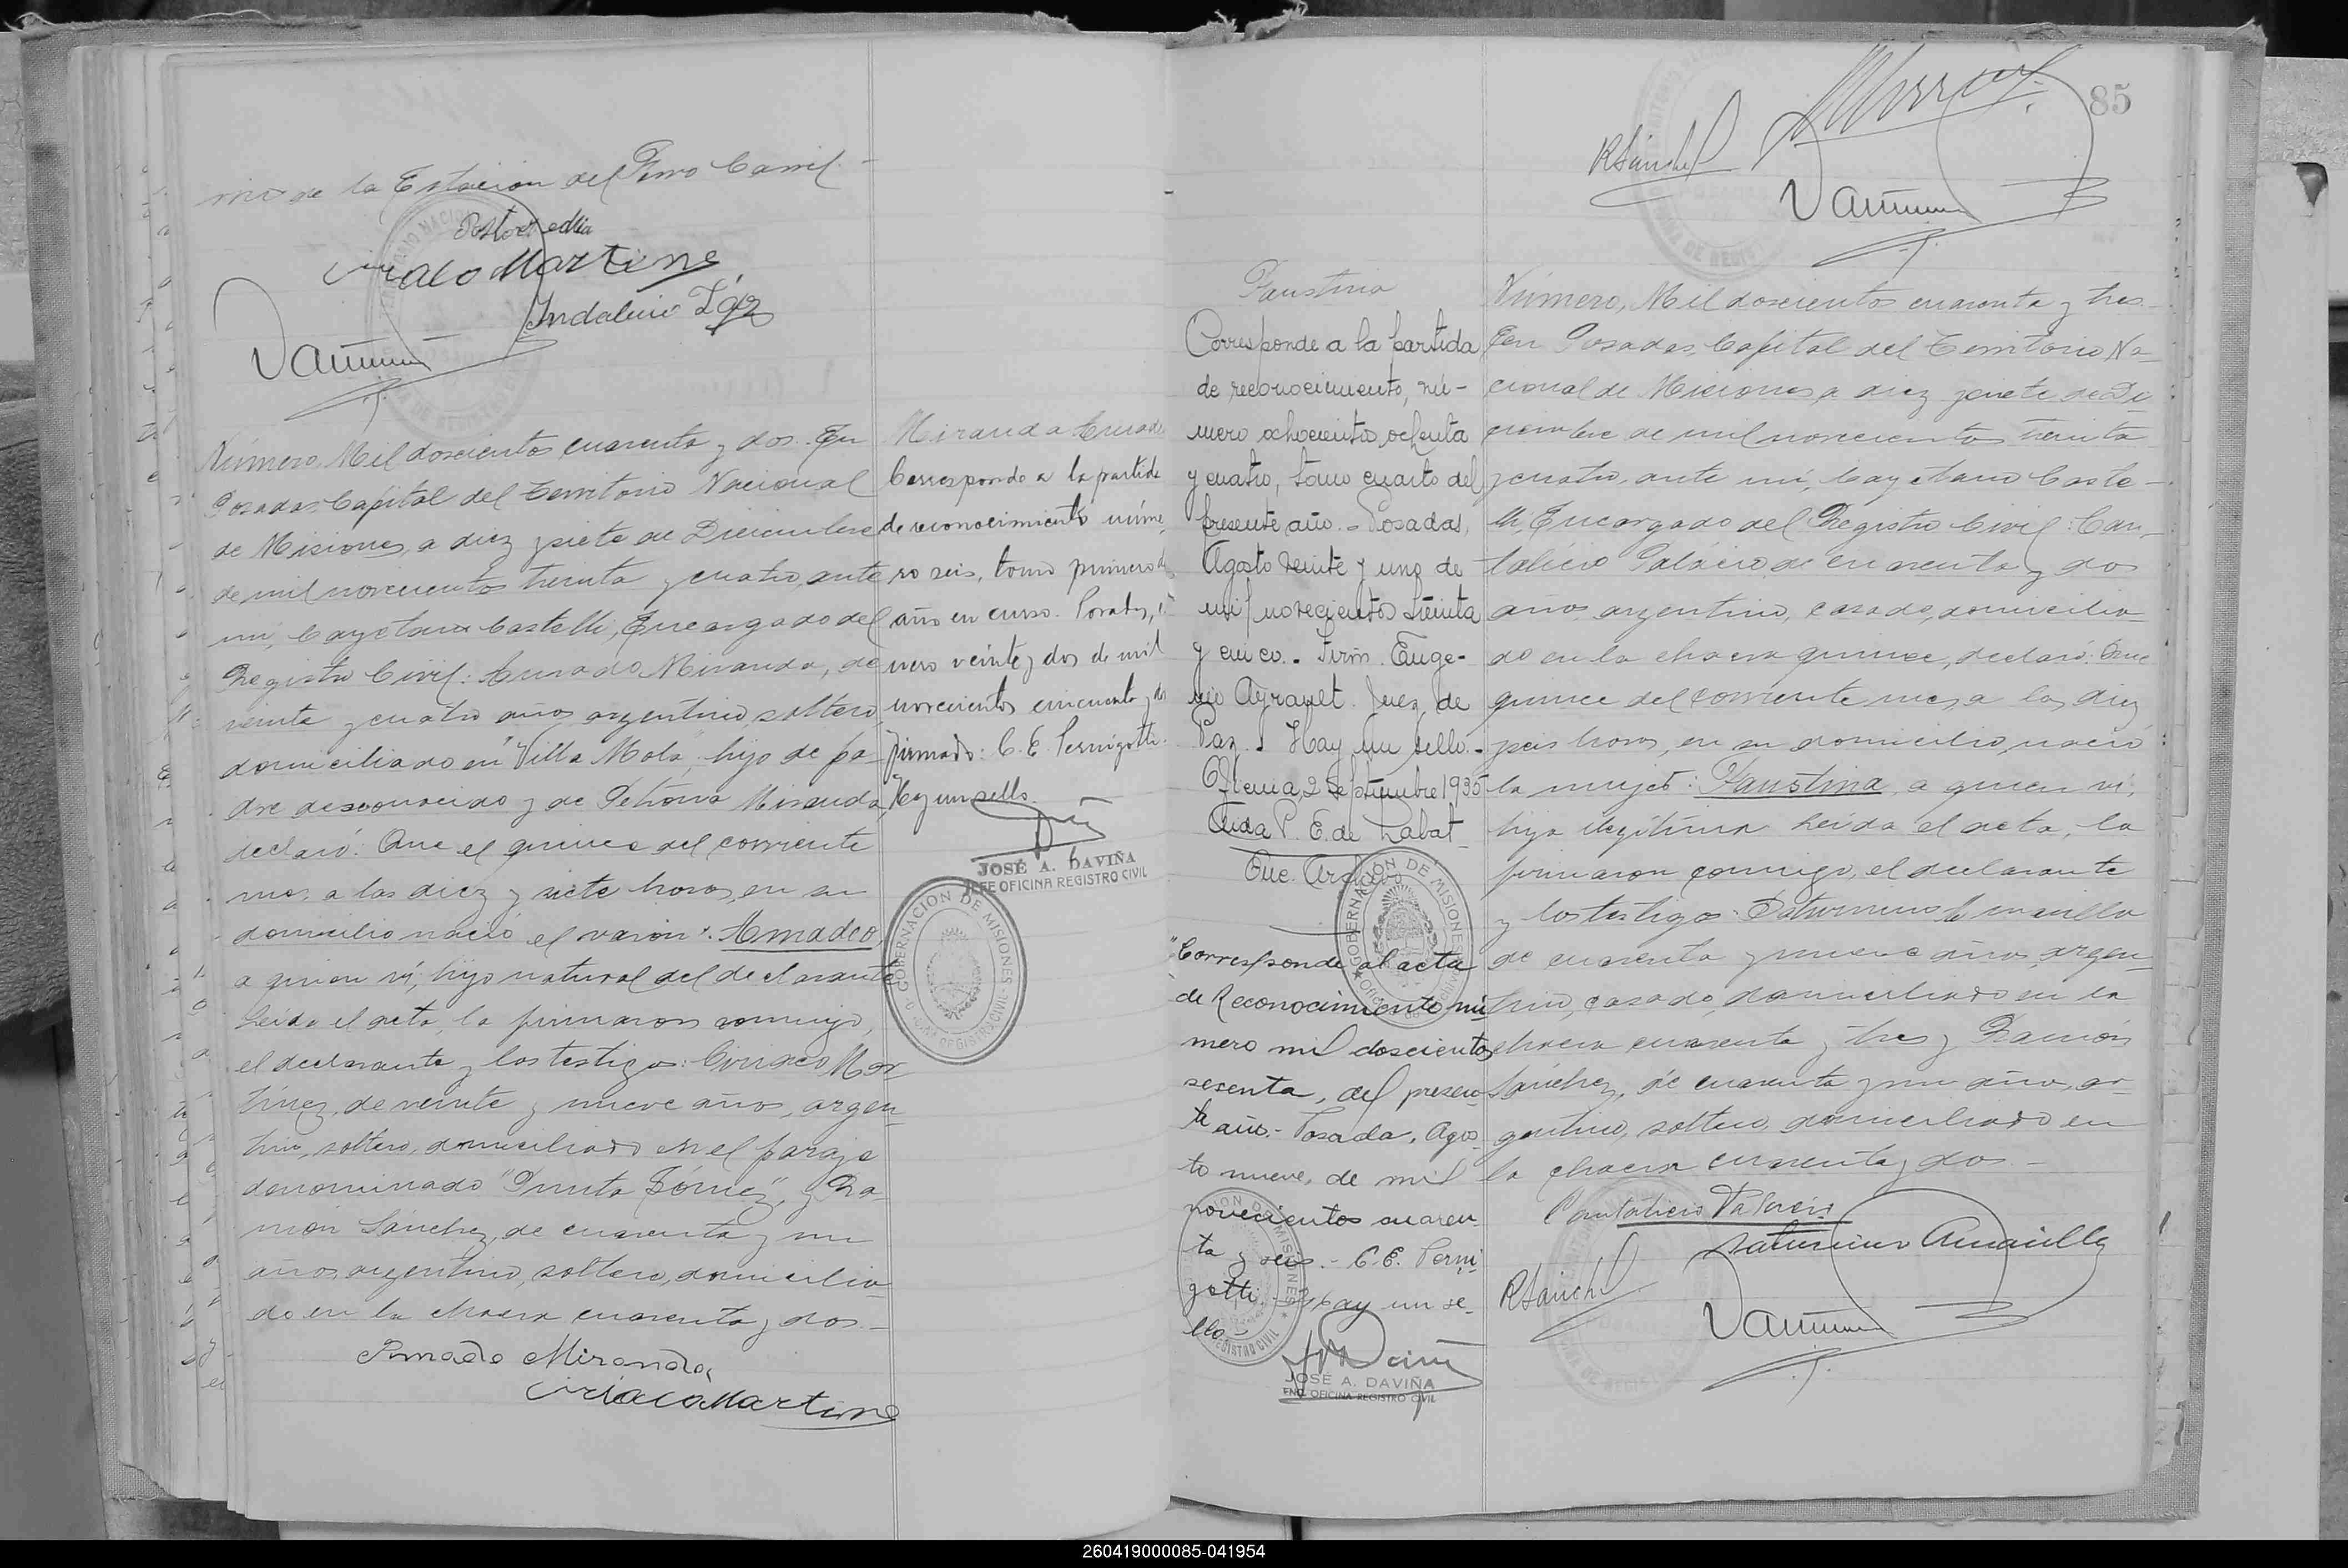 rio de la Estacion del Ferro Carril.-
Pastor Mia
Ciriaco Martinez
Indalecio
Número, Mil doscientos cuarenta y dos. En
Posadas Capital del Territorio Nacional
de Misiones, a diez y siete de Diciembre
de mil novecientos treinta y cuatro, ante
mi, Cayetano Castelli, Encargado del
Registro Civil: Amado Miranda, de
veinte y cuatro años, argentino, soltero,
domiciliado en "Villa Mola", hijo de pa-
dre desconocido y de Petrona Miranda,
declaró: Que el quince del corriente
mes, a las diez y siete horas, en su
domicilio nació el varon: Amadeo,
a quien ví, hijo natural del declarante
Leida el acta, la firmaron conmigo,
el declarante y los testigos: Ciriaco Mar-
tínez, de veinte y nueve años, argen-
tino, soltero, domiciliado en el paraje
denominado "Punta Gómez", y Ra-
món Sánchez, de cuarenta y un
años, argentino, soltero, domicilia-
do en la chacra cuarenta y dos.-
Amado Miranda
Ciriaco Martinez
Miranda Amadeo
Corresponde a la partida
de reconocimiento núme-
ro seis, tomo primero del
año en curso. Posadas, e-
nero veinte y dos de mil
novecientos cincuenta y dos
firmado: C. E. Pernigotti.
Hay un sello
JOSÉ A. DAVIÑA
JEFE OFICINA REGISTRO CIVIL
GOBERNACION DE MISIONES
85
RSánchez
Faustina
Corresponde a la partida
de reconocimiento, nú-
mero ochocientos ochenta
y cuatro, tomo cuarto del
presente año.- Posadas,
Agosto veinte y uno de
mil novecientos treinta
y cinco.- Firm. Euge-
nio Ayrault. Juez de
Paz.- Hay un sello.-
Oficina, 2 Septiembre 1935
Aida P. E. de Labat
Enc. Archivo
GOBERNACION DE MISIONES
"Corresponde al acta
de Reconocimiento nú-
mero mil doscientos
sesenta, del presen-
te año.- Posadas, Agos-
to nueve, de mil
novecientos cuaren-
ta y seis.- C.E. Perni-
gotti.- Hay un se-
llo.-
JOSÉ A. DAVIÑA
ENC. OFICINA REGISTRO CIVIL
Número, Mil doscientos cuarenta y tres-
En Posadas, Capital del Territorio Na-
cional de Misiones, a diez y siete de Di-
ciembre de mil novecientos treinta
y cuatro, ante mi, Cayetano Caste-
lli, Encargado del Registro Civil: Can-
talicio Palacio, de cuarenta y dos
años, argentino, casado, domicilia-
do en la chacra quince, declaró: Que
quince del corriente mes, a las diez
y seis horas, en su domicilio, nació
la mujer: Faustina, a quien ví,
hija ilegítima Leida el acta, la
firmaron conmigo, el declarante
y los testigos: Saturnino Amarilla
de cuarenta y nueve años, argen-
tino, casado, domiciliado en la
chacra cuarenta y tres y Ramón
Sánchez, de cuarenta y un años, ar-
gentino, soltero, domiciliado en
la chacra cuarenta y dos.-
Cantalicio Palacio
Saturnino Amarilla
RSánchez
260419000085-041954